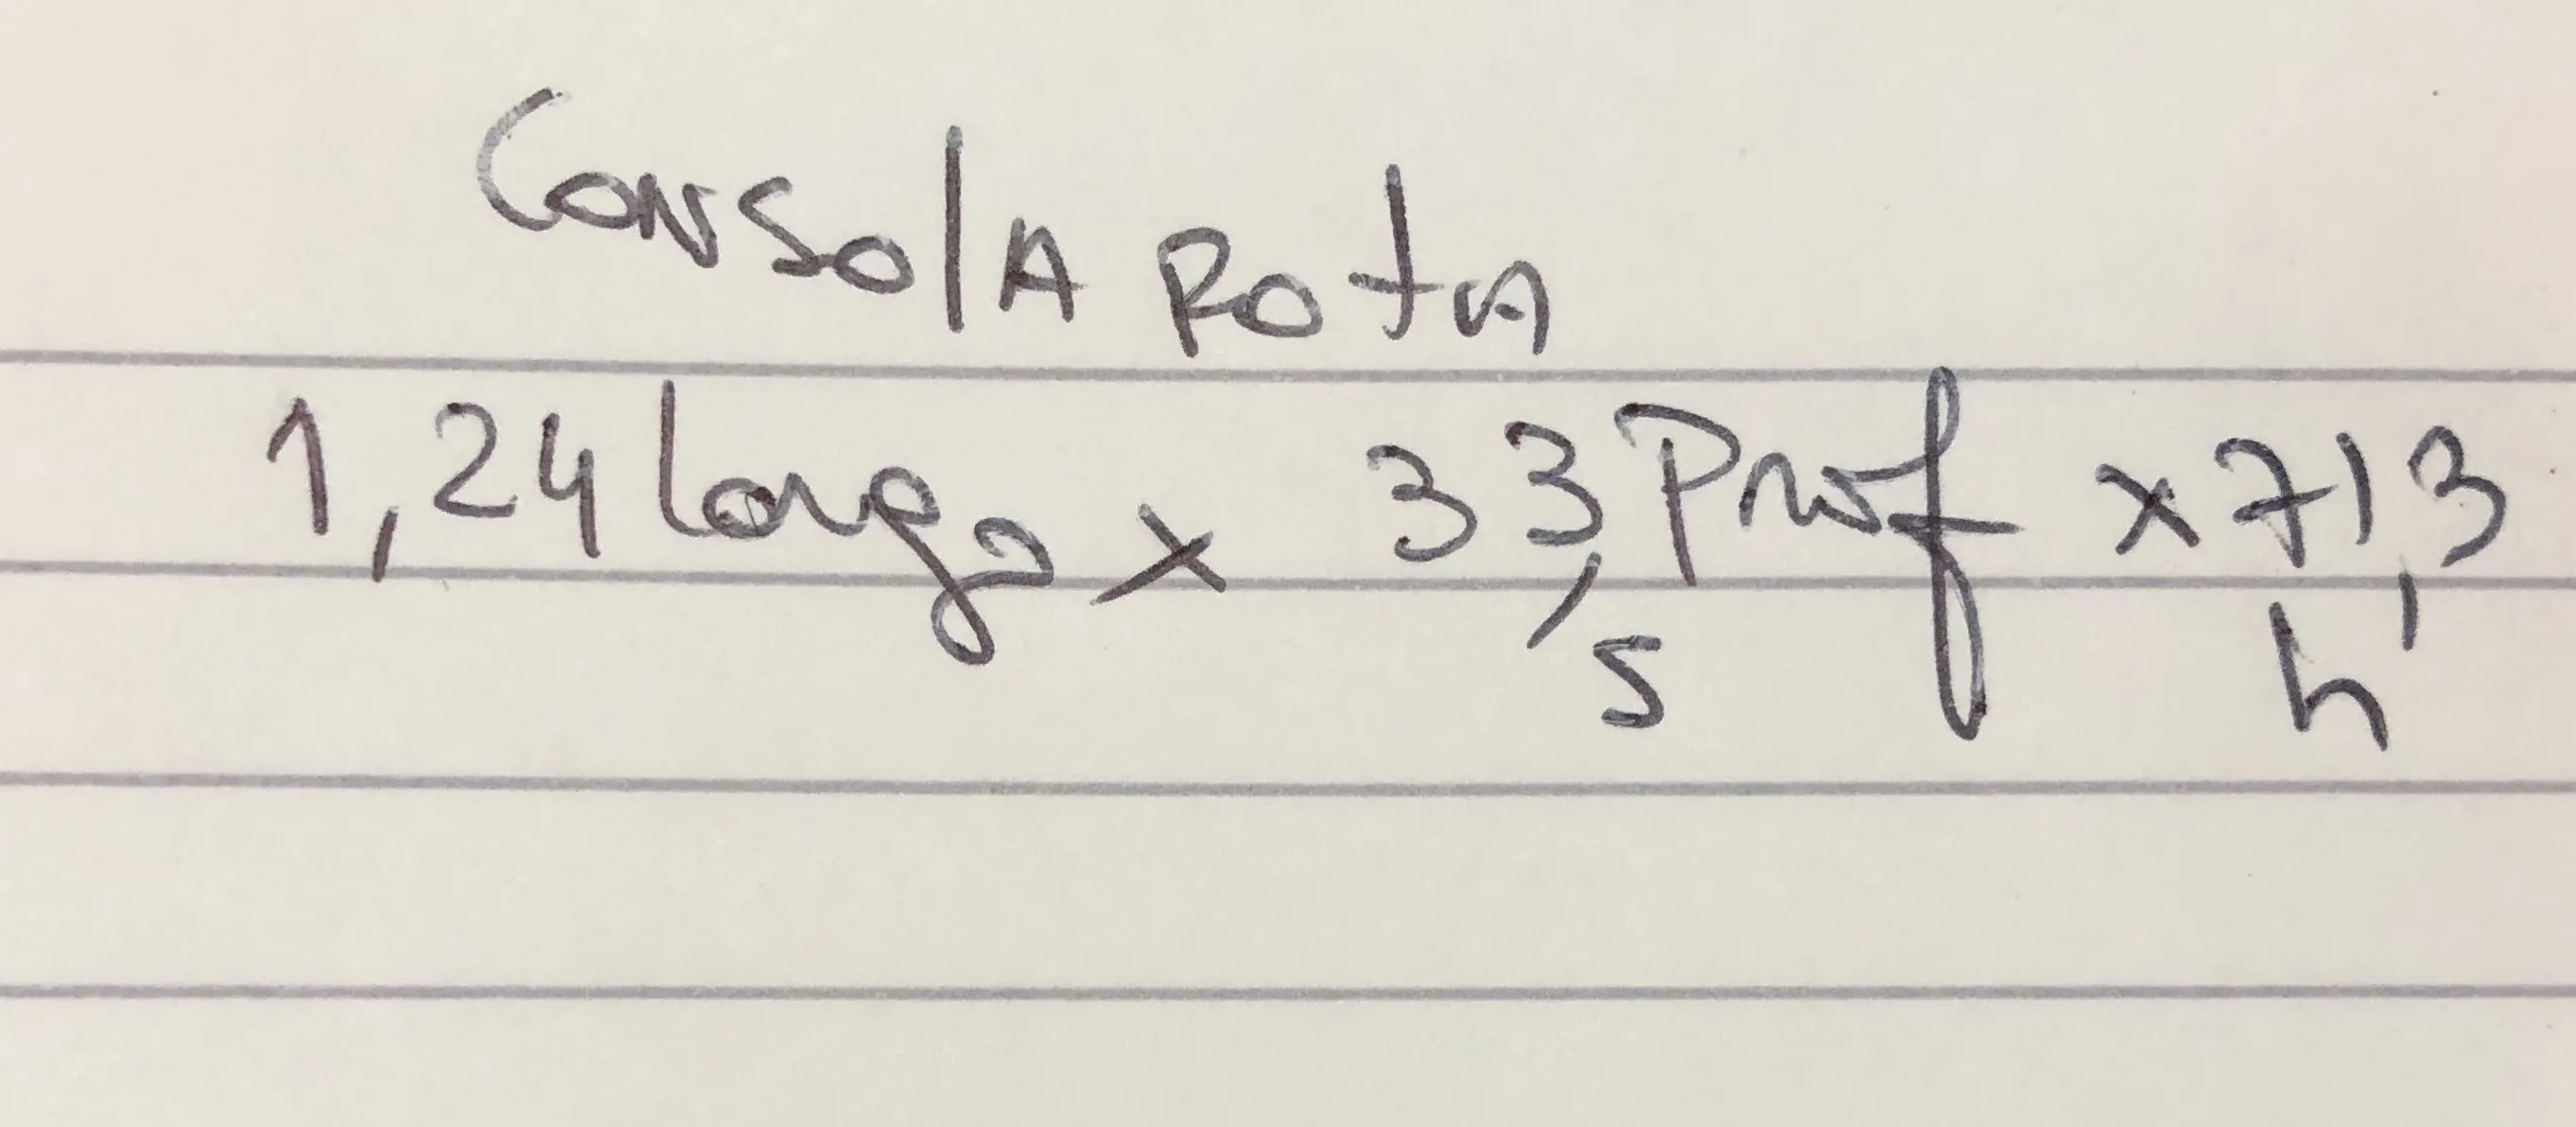 Consola Rota
1,24 largo x 33,5 Prof x 71,3 h